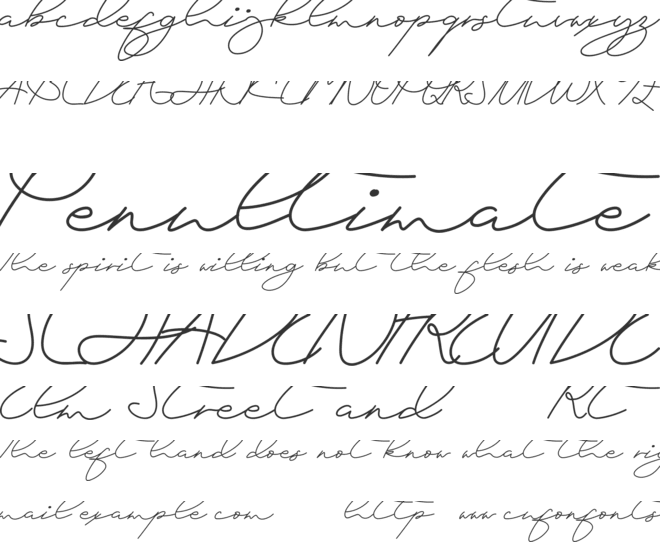 abcdefghijklmnopqrstuvwxyz
ABCDEFGHIJKLMNOPQRSTUVWXYZ
Penultimate
The spirit is willing but the flesh is weak
SCHADENFREUDE
Elm Street and Rt
The left hand does not know what the rig
mail example com http www cufonfonts